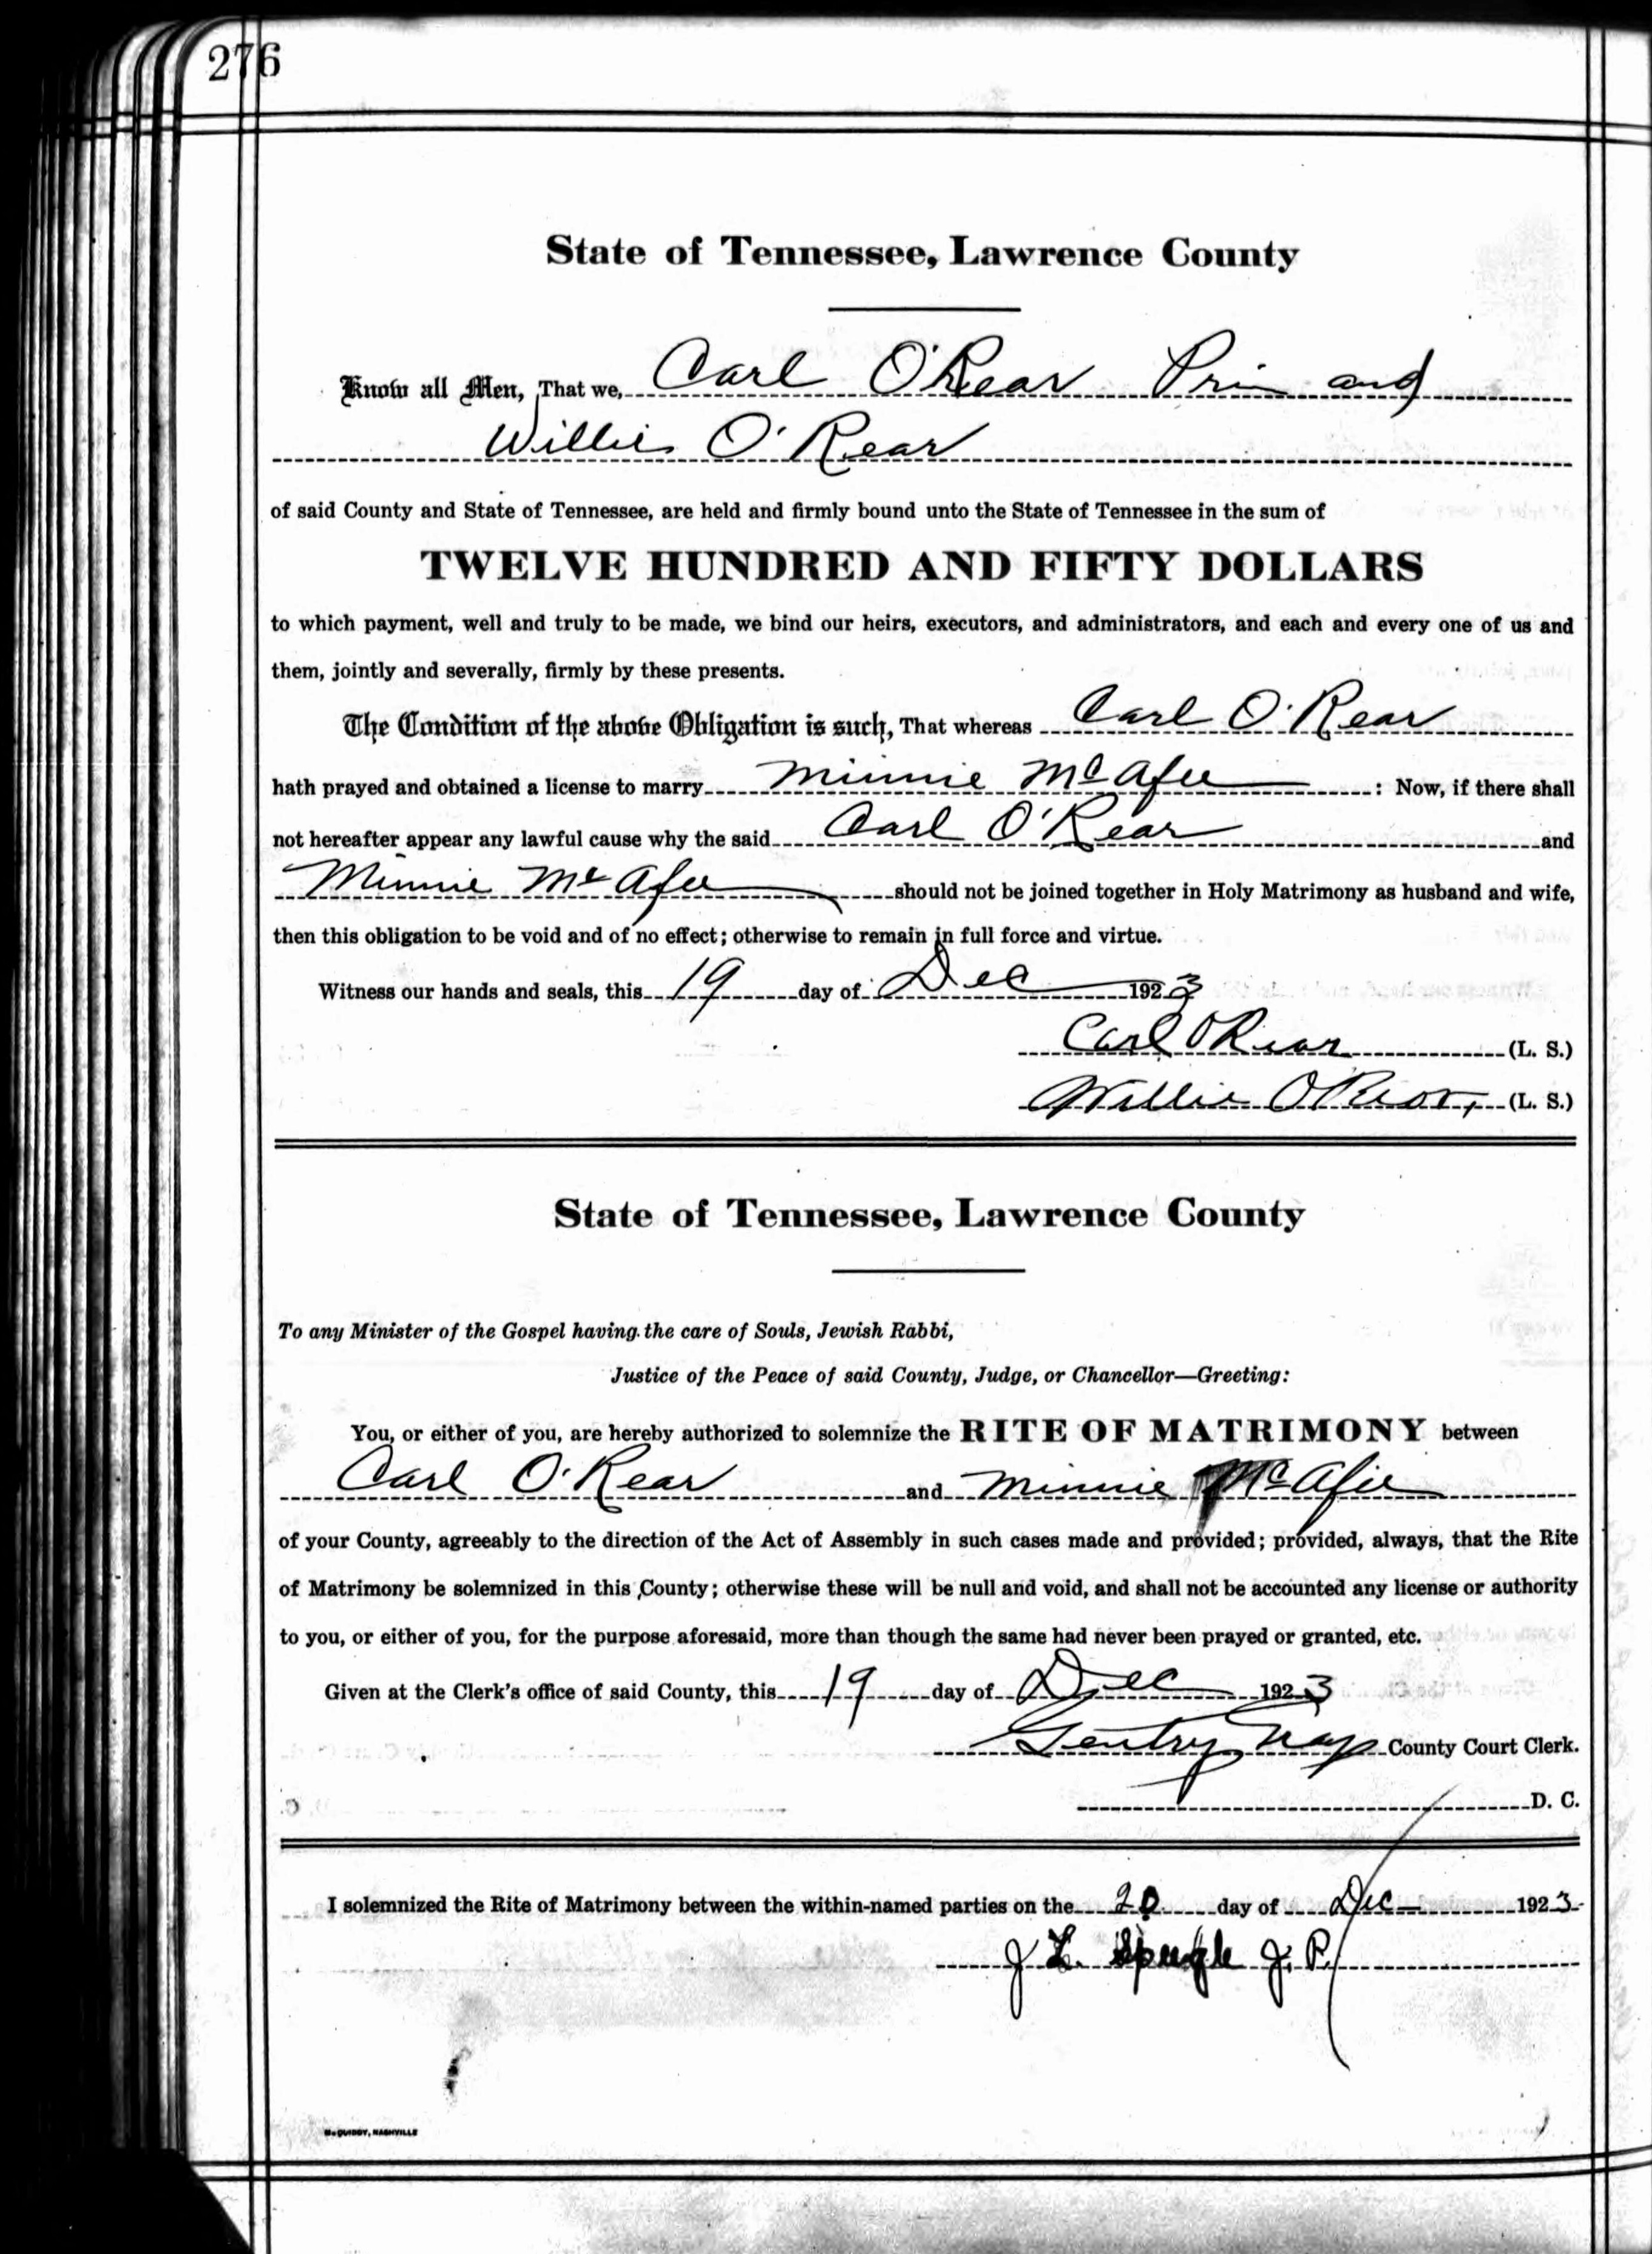 276
State of Tennessee, Lawrence County
Know all Men, That we, Carl O'Rear Prin and
Willie O'Rear
of said County and State of Tennessee, are held and firmly bound unto the State of Tennessee in the sum of
TWELVE HUNDRED AND FIFTY DOLLARS
to which payment, well and truly to be made, we bind our heirs, executors, and administrators, and each and every one of us and
them, jointly and severally, firmly by these presents.
The Condition of the above Obligation is such, That whereas Carl O'Rear
hath prayed and obtained a license to marry Minnie McAfee : Now, if there shall
not hereafter appear any lawful cause why the said Carl O'Rear and
Minnie McAfee should not be joined together in Holy Matrimony as husband and wife,
then this obligation to be void and of no effect; otherwise to remain in full force and virtue.
Witness our hands and seals, this 19 day of Dec 1923
Carl O Rear (L. S.)
Willie O Rear, (L. S.)
State of Tennessee, Lawrence County
To any Minister of the Gospel having the care of Souls, Jewish Rabbi,
Justice of the Peace of said County, Judge, or Chancellor—Greeting:
You, or either of you, are hereby authorized to solemnize the RITE OF MATRIMONY between
Carl O'Rear and Minnie McAfee
of your County, agreeably to the direction of the Act of Assembly in such cases made and provided; provided, always, that the Rite
of Matrimony be solemnized in this County; otherwise these will be null and void, and shall not be accounted any license or authority
to you, or either of you, for the purpose aforesaid, more than though the same had never been prayed or granted, etc.
Given at the Clerk's office of said County, this 19 day of Dec 1923
Gentry County Court Clerk.
D. C.
I solemnized the Rite of Matrimony between the within-named parties on the 20 day of Dec 1923
J L. J. P.
McQUIDDY, NASHVILLE